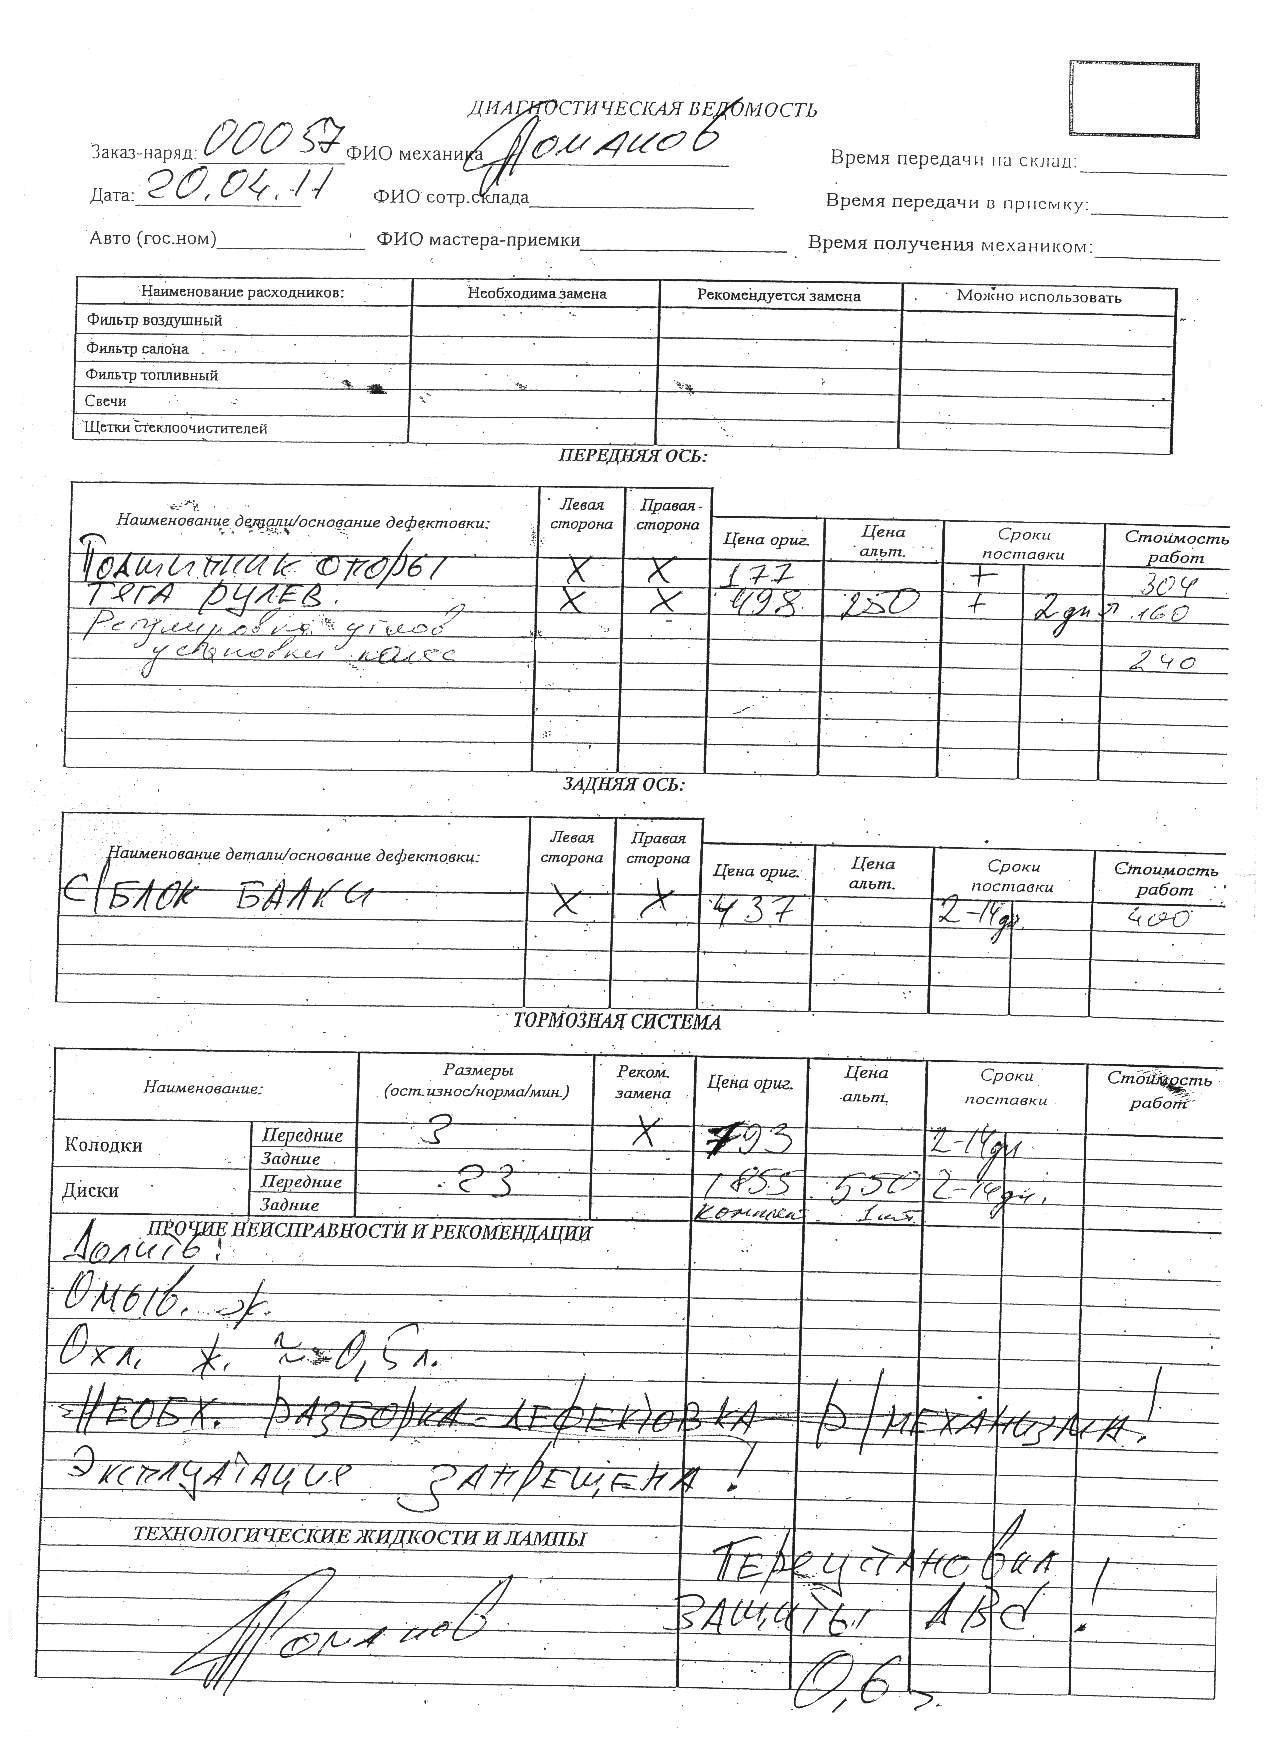 ДИАГНОСТИЧЕСКАЯ ВЕДОМОСТЬ
Заказ-наряд: 000057 ФИО механика Романов Время передачи на склад:
Дата: 20.04.11 ФИО сотр.склада Время передачи в приемку:
Авто (гос.ном) ФИО мастера-приемки Время получения механиком:
Наименование расходников: Необходима замена Рекомендуется замена Можно использовать
Фильтр воздушный
Фильтр салона
Фильтр топливный
Свечи
Щетки стеклоочистителей
ПЕРЕДНЯЯ ОСЬ:
Наименование детали/основание дефектовки: Левая сторона Правая сторона Цена ориг. Цена альт. Сроки поставки Стоимость работ
Подшипник опоры X X 177 + 304
тяга рулев. X X 498 250 + 2 дн 160
Регулировка углов
установки колес 240
ЗАДНЯЯ ОСЬ:
Наименование детали/основание дефектовки: Левая сторона Правая сторона Цена ориг. Цена альт. Сроки поставки Стоимость работ
С/БЛОК БАЛКИ X X 437 2-14дн 400
ТОРМОЗНАЯ СИСТЕМА
Наименование: Размеры (ост.износ/норма/мин.) Реком. замена Цена ориг. Цена альт. Сроки поставки Стоимость работ
Колодки Передние 3 X 793 2-14дн
Задние
Диски Передние 23 1855 550 2-14дн.
Задние комплек 1 шт.
ПРОЧИЕ НЕИСПРАВНОСТИ И РЕКОМЕНДАЦИИ
Долить:
Омыв. ж.
Охл. ж. ≈ 0,5л.
НЕОБХ. РАЗБОРКА-ДЕФЕКТОВКА Р/МЕХАНИЗМА!
Эксплуатация ЗАПРЕЩЕНА!
ТЕХНОЛОГИЧЕСКИЕ ЖИДКОСТИ И ЛАМПЫ
Переустановил
Романов ЗАЩИТЫ
0,6